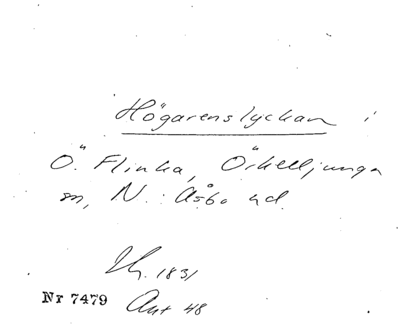 Högarenslyckan i
Ö. Flinka, Örkelljunga
sn, N. Åsbo hd.
Lh. 1831
Nr 7479 Ant 48